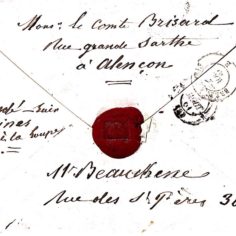 Mons: le Comte Brisard
Rue grande Sarthe
à Alençon
à la Loupe
Mr Beauchene
Rue des Sts Pères 30